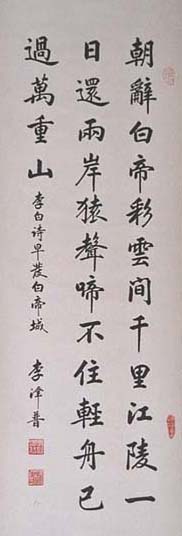 朝辭白帝彩雲間千里江陵一
日還兩岸猿聲啼不住輕舟已
過萬重山
李白诗早發白帝城
李澤普